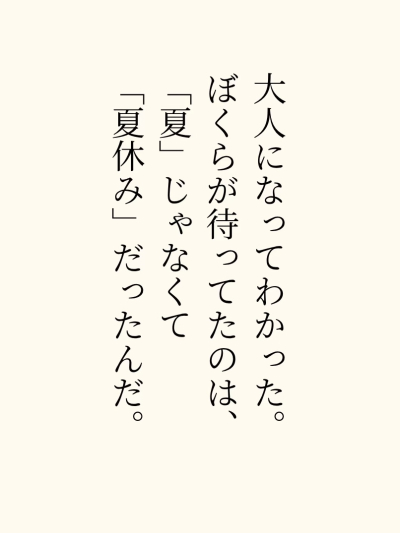 大人になってわかった。
ぼくらが待ってたのは、
「夏」じゃなくて
「夏休み」だったんだ。